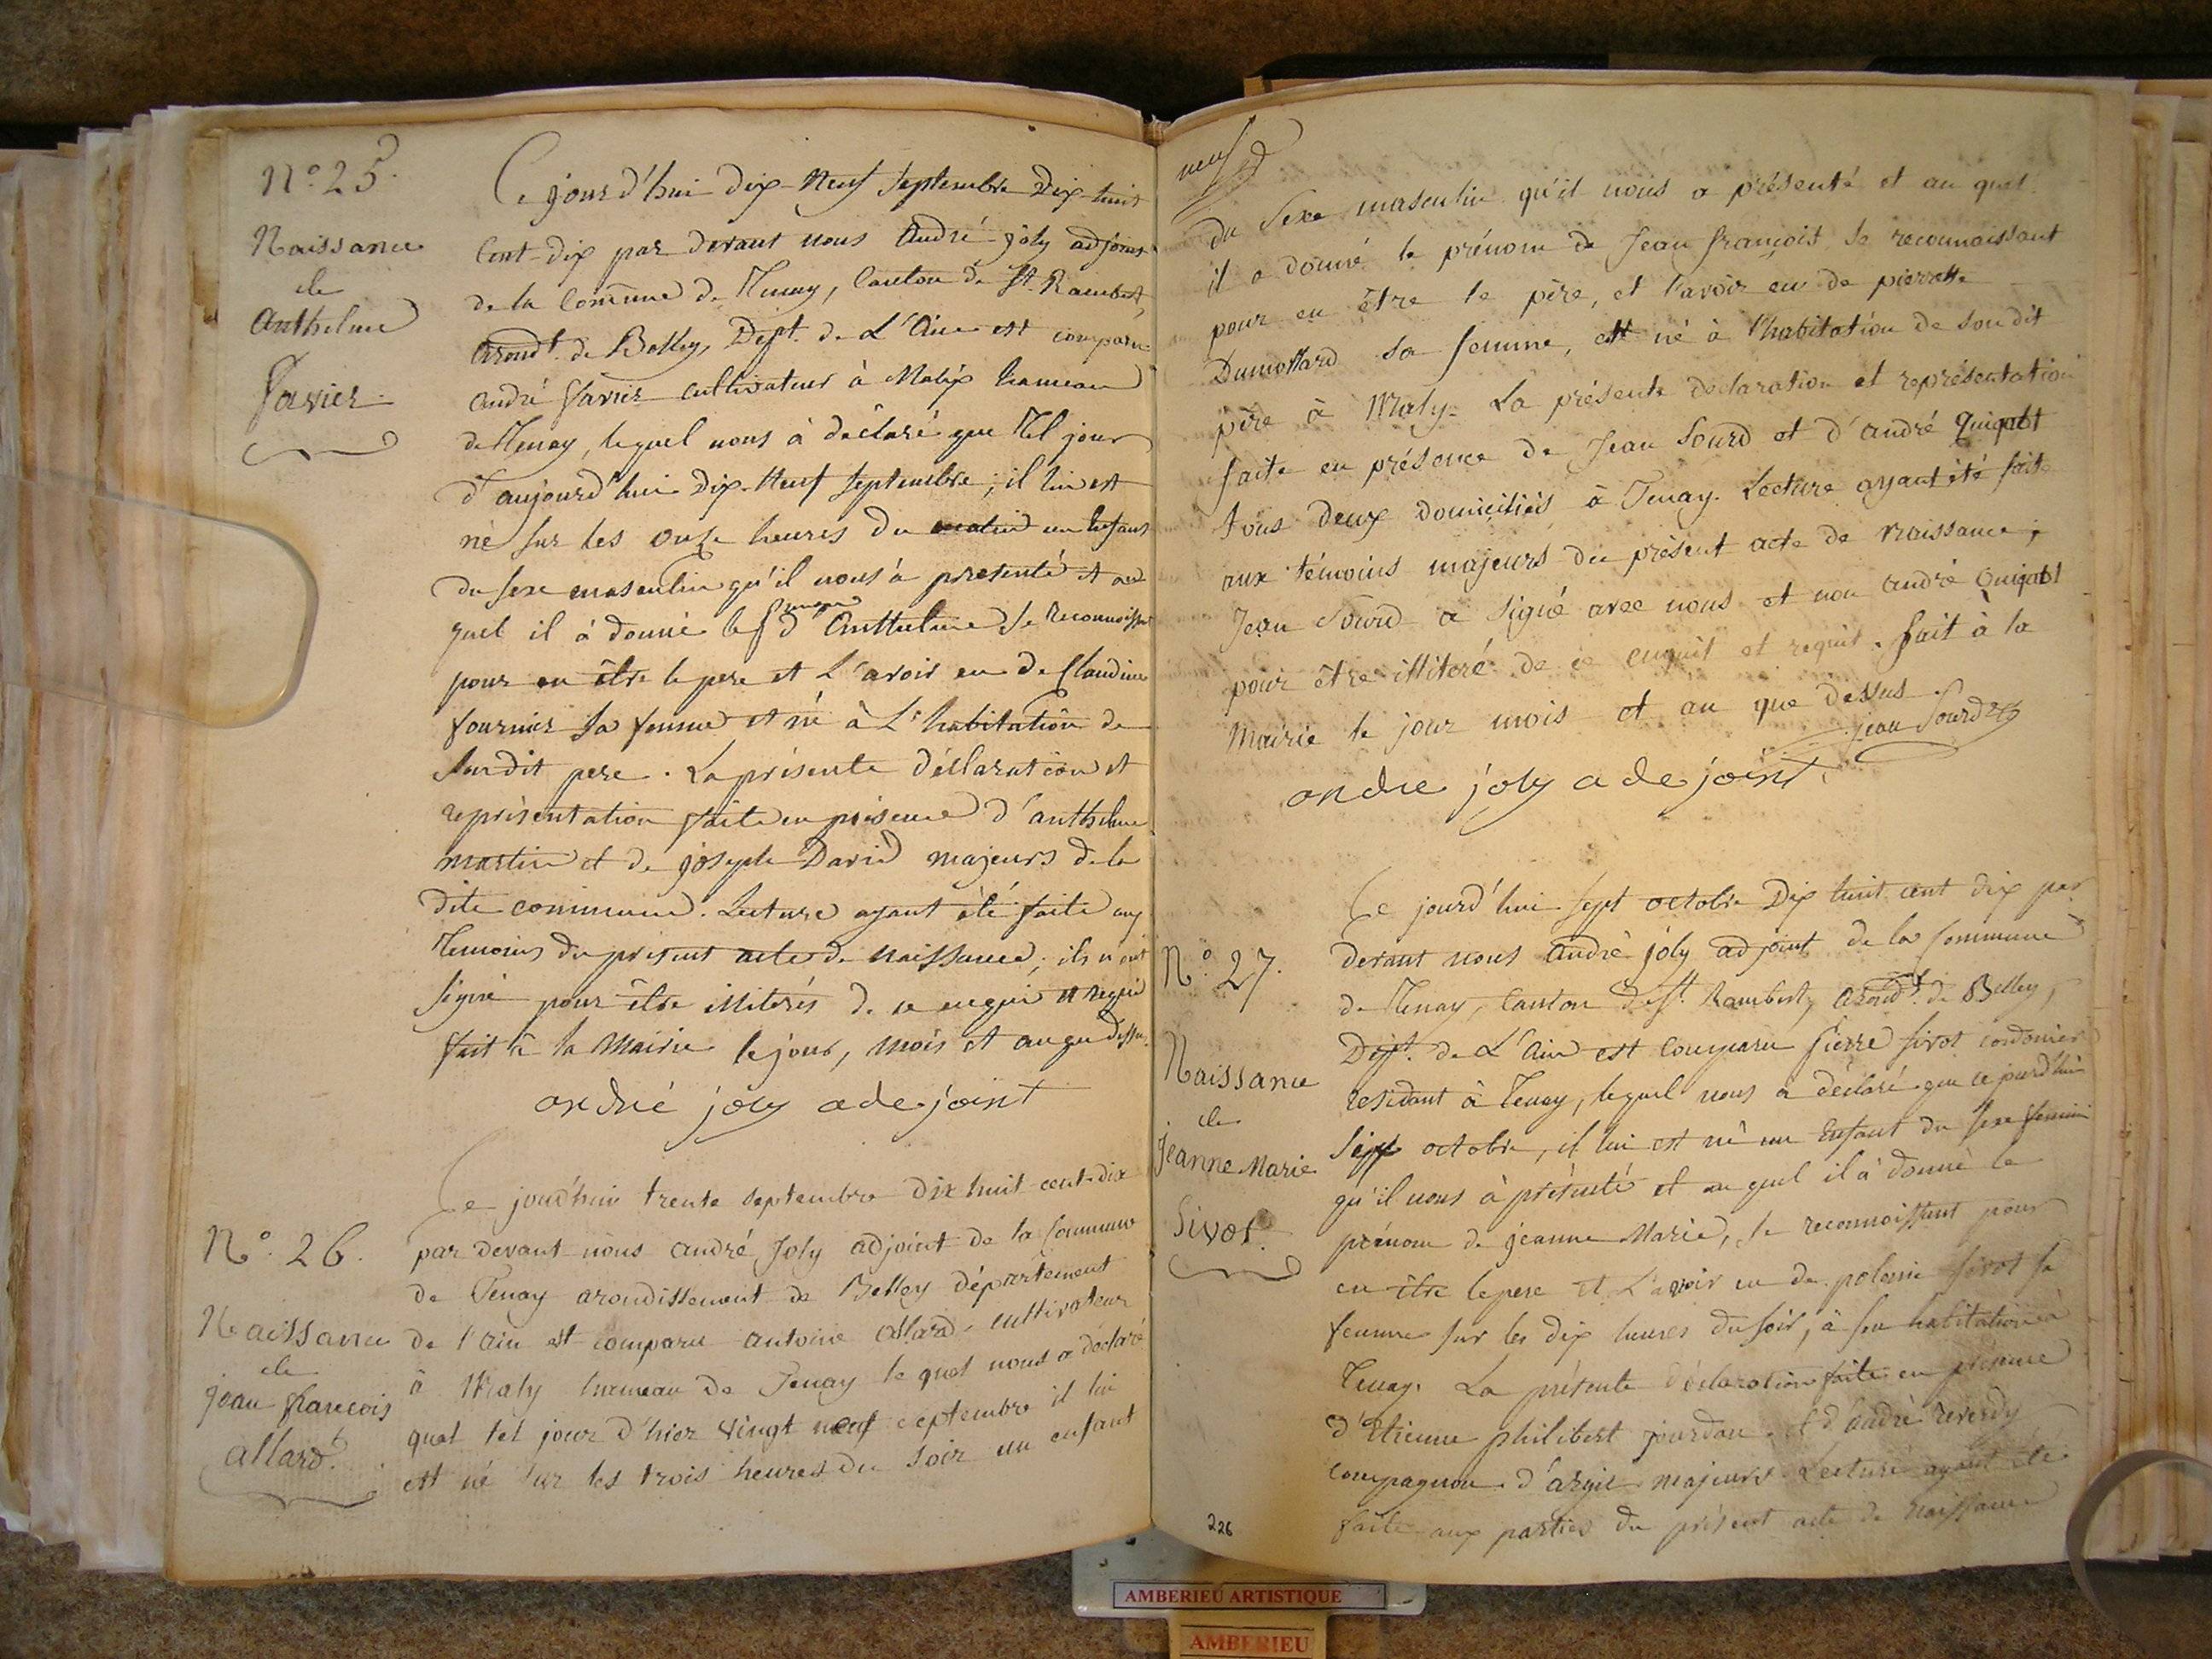 N.° 25.
Naissance
de
Anthelme
Favier
Ce jourd'hui Dix-Neuf Septembre Dix-huit
Cent-dix par devant nous André joly adjoint
de la Commune de Tenay, Canton de St. Rambert,
Arondt. de Belley, Dept. de L'Ain est comparu
André favier cultivateur à Malix hameau
de Tenay, lequel nous à déclaré que Tel jour
d'aujourd'hui Dix-Neuf Septembre, il lui est
né sur les Onze heures du matin un Enfant
du sexe masculin qu'il nous à presenté et au
quel il à donné le prenom d'Anthelme se reconnoissant
pour en être le pere et L'avoir eu de Claudine
fournier sa femme et né à L'habitation de
son dit pere. La présente déclaration et
représentation faite en présence d'anthelme
martin et de joseph David majeurs de la
dite commune. Lecture ayant été faite aux
Temoins du présent acte de Naissance; ils n'ont
signé pour être illiterés de ce enquis et requis
fait à la Mairie le jour, mois et an que dessus.
andré joly adejoint
N.° 26.
Naissance
de
Jean françois
allard.
Ce jourd'hui trente septembre dix huit cent-dix
par devant nous André Joly adjoint de la Commune
de Tenay arondissement de Belley département
de l'ain est comparu antoine allard cultivateur
à Maly hameau de Tenay le quel nous a déclaré
que tel jour d'hier vingt neuf septembre il lui
est né sur les trois heures du soir un enfant
neuf
du Sexe masculin qu'il nous a présenté et au quel
il a donné le prénom de Jean françois se reconnaissant
pour en être le père, et l'avoir eu de pierrette
Dumollard sa femme, est né à l'habitation de son dit
père à Maly. La présente déclaration et représentation
faite en présence de Jean Sourd et d'andré
tous deux domiciliés à Tenay. Lecture ayant été faite
aux témoins majeurs du présent acte de Naissance;
Jean Sourd a signé avec nous et non andré
pour être illitéré de ce enquit et requit. fait à la
Mairie le jour mois et an que dessus
jean Sourd
andre joly adejoint
N.° 27.
Naissance
de
Jeanne Marie
Sivot.
Ce jourd'hui sept octobre Dix huit cent dix par
devant nous André joly adjoint de la Commune
de Tenay, Canton de St. Rambert, Arondt. de Belley,
Dept. de L'Ain est comparu Pierre sivot cordonier
résidant à Tenay, lequel nous à déclaré que cejourd'hui
Sept octobre, il lui est né un Enfant du sexe feminin
qu'il nous à présenté et au quel il à donné le
prénom de jeanne Marie, se reconnoissant pour
en être le pere et L'avoir eu de sivot sa
femme sur les dix heures du soir, à son habitation à
Tenay. La présente déclaration faite en présence
d'Etienne philibert jourdan et d'andré reverdy
compagnon d'argis majeurs Lecture ayant été
faite aux parties du présent acte de naissance
226
AMBERIEU ARTISTIQUE
AMBERIEU